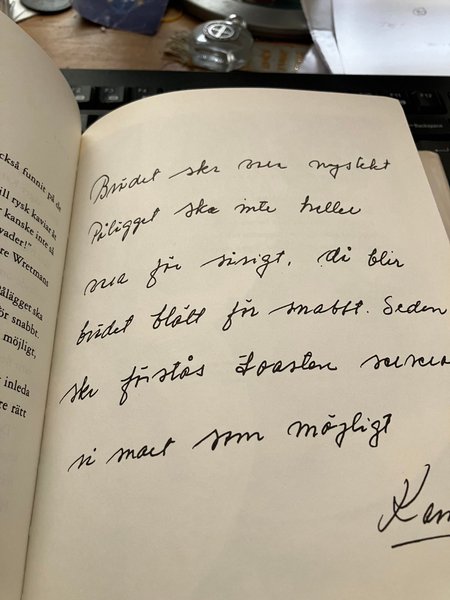 ckså funnit på de
ill rysk kaviar är
- kanske inte så
vader!"
re Wretmans
ålägget ska
ör snabbt.
möjligt,
inleda
re rätt
Brödet ska vara nystekt
Pålägget ska inte heller
vara för, då blir
brödet blött för snabbt. Sedan
ska förstås toasten servera
så snart som möjligt